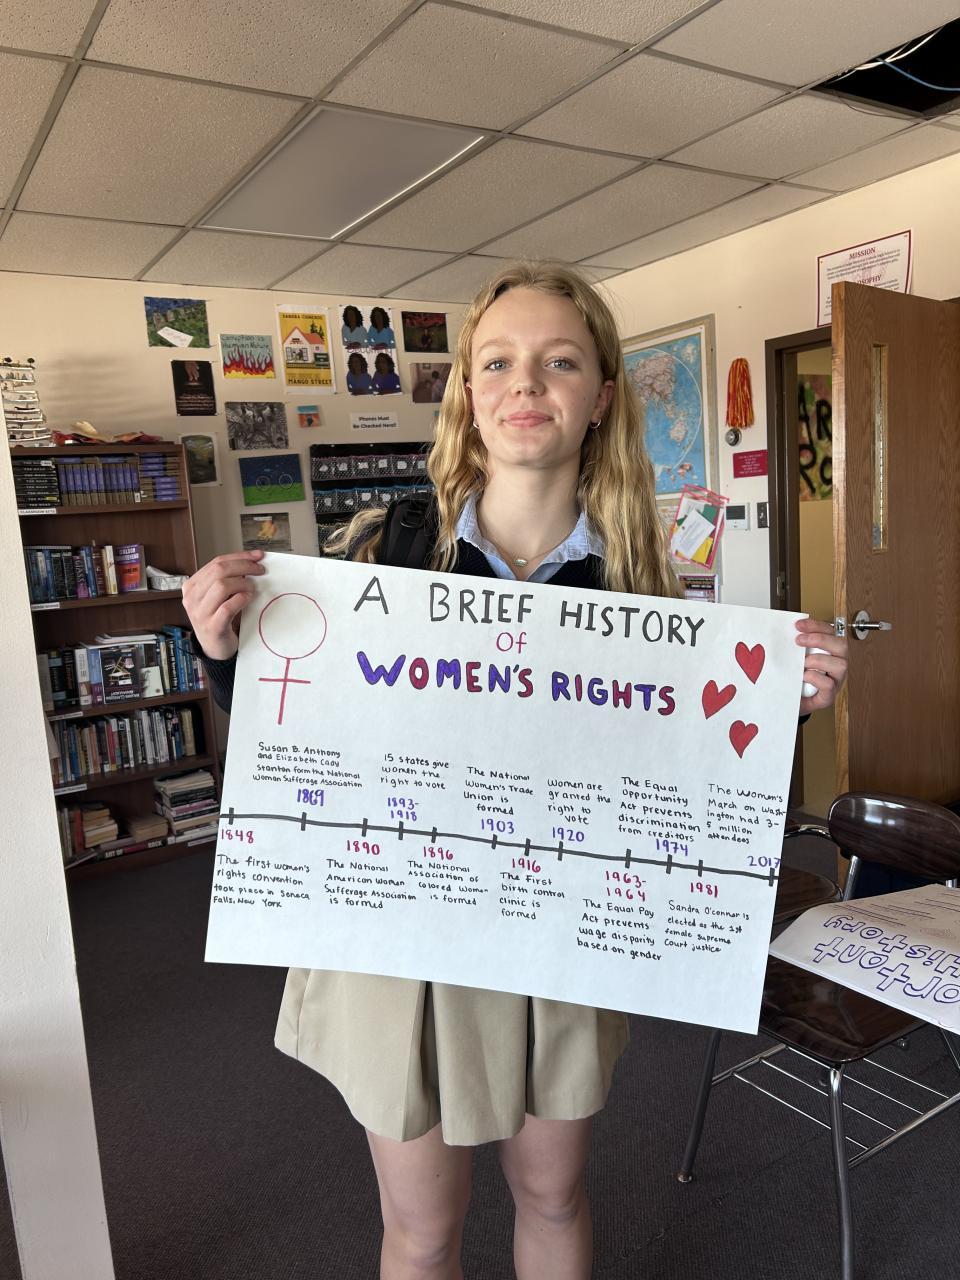 MISSION
SANDRA CISNEROS
Corruption is
Human Nature
MANGO STREET
Phones Must
Be Checked Here!!
A BRIEF HISTORY
Of
WOMEN'S RIGHTS
Susan B. Anthony
and Elizabeth Cady
Stanton form the National
Woman Sufferage Association
1869
15 states give
women the
right to vote
1893-
1918
The National
Women's Trade
Union is
formed
1903
Women are
granted the
right to
vote
1920
The Equal
Opportunity
Act prevents
discrimination
from creditors
1974
The Women's
March on Wash-
ington had 3-
5 million
attendees
2017
1848
The first women's
rights convention
took place in Seneca
Falls, New York
1890
The National
American Woman
Sufferage Association
is formed
1896
The National
Association of
Colored Wome-
is formed
1916
The First
birth control
clinic is
formed
1963-
1964
The Equal Pay
Act prevents
wage disparity
based on gender
1981
Sandra O'connor is
elected as the 1st
female supreme
court justice
History